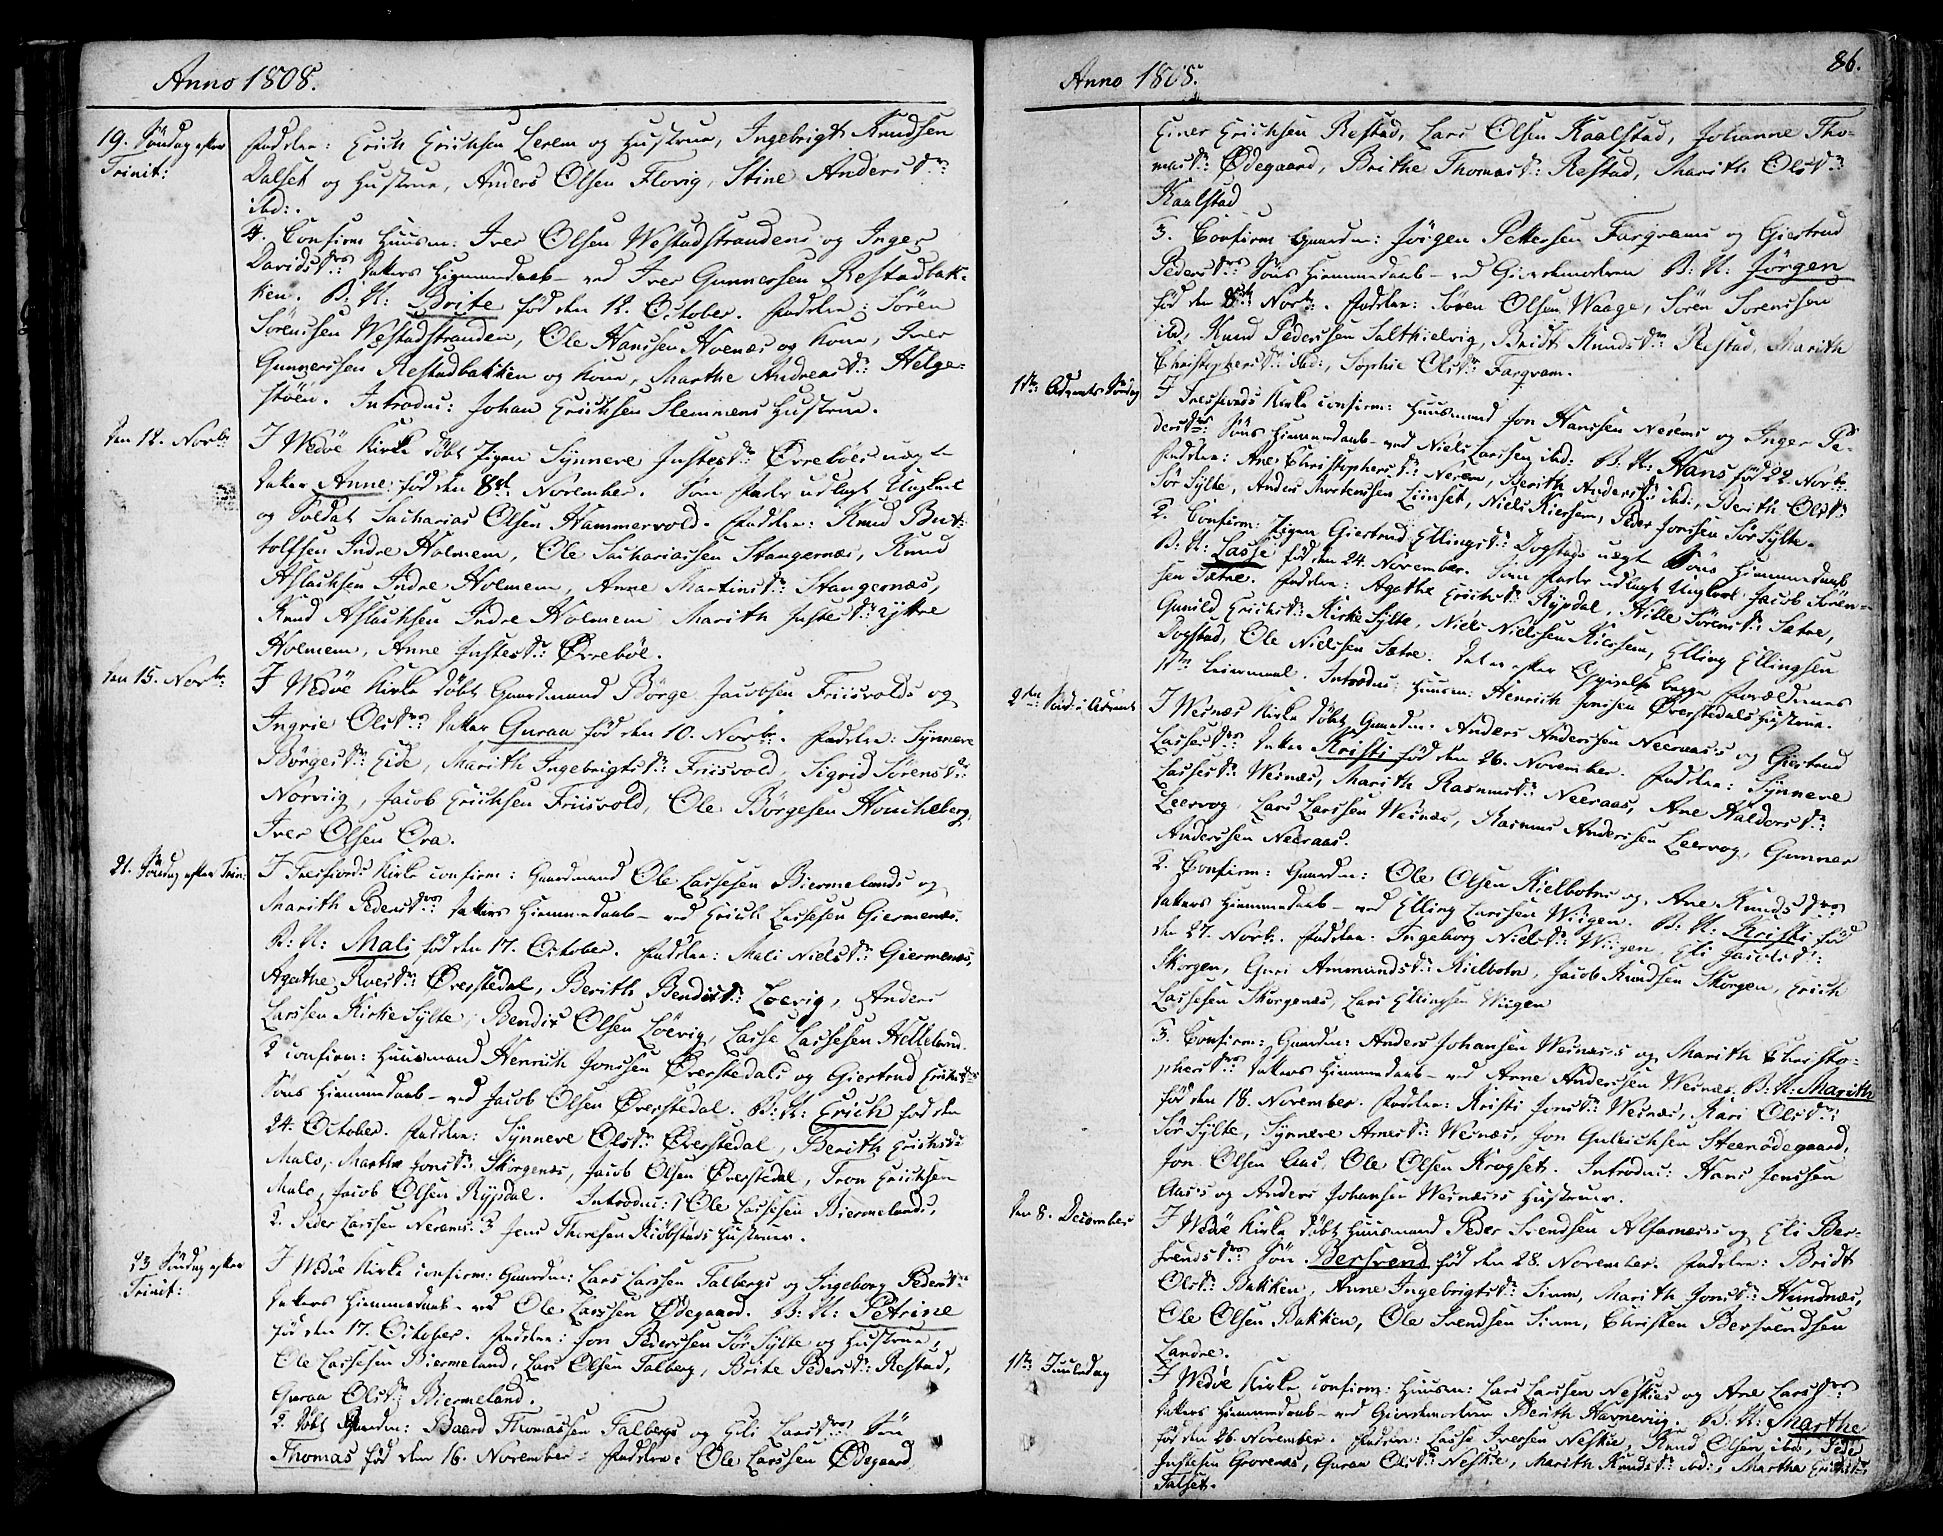 Anno 1808.
19. Søndag efter
Trinit:
Faddere: Erich Erichsen Lerem og Hustrue, Ingebrigt Knudsen
Dalset og Hustrue, Anders Olsen Flovig, Stine Andersdr:
ibd:.
4. Confirm Huusm: Iver Olsen Westadstrandens og Inger
Davidsdrs: Datters Hiemmedaab ved Iver Gunnersen Restadbak-
ken. B: N: Brite fød den 12. October. Faddere: Sören
Sörenssen Westadstranden, Ole Hanssen Hoenæs og Kone, Iver
Gunnerssen Restadbakken og Kone, Marthe Andreasdr: Helge-
støen. Introduc: Johan Erichsen Slemmens Hustrue.
den 12. Novbr:
I Wedöe Kirke døbt Pigen Synneve Justesdr: Øvrebøes uægte
Datter Anne fød den 8de November. Som Fader udlagt Ungkarl
og Soldat Sacharias Olsen Hammervold. Faddere: Knud But-
tolfsen Indre Holmem, Ole Sachariassen Stangernæs, Knud
Aslachsen Indre Holmem, Anne Martinsdr: Stangernæs,
Knud Aslachsen Indre Holmem Marith Justesdr: Yttre
Holmem, Anne Justesdr: Øvrebøe.
den 15. Novbr:
I Wedöe Kirke døbt Gaardmand Börge Jacobsen Friisvolds og
Ingrie Olsdrs: Datter Guraa fød den 10. Novbr:. Faddere: Synneve
Börgesdr: Eide, Marith Ingebrigtsdr: Friisvold, Sigrid Sörensdr:
Norviig, Jacob Erichsen Friisvold, Ole Börgesen Houcheberg,
Iver Olsen Ora.
21. Søndag efter Trin:
I Tresfiords Kirke confirm: Gaardmand Ole Lassesen Biermelands og
Marith Pedersdrs: Datters Hiemmedaab ved Erich Lassesen Giermenæs.
B: N: Mali fød den 17. October. Faddere: Mali Nielsdr: Giermenæs,
Agathe Roesdr: Øverstedal, Berith Bendixdr: Loevig, Anders
Larssen Kirke Sylte, Bendix Olsen Löevig, Lasse Lassesen Helleland.
2 confirm: Huusmand Henrich Jonssen Øverstedals og Giertrud Erichsdrs
Söns Hiemmedaab ved Jacob Olsen Øverstedal. B: N: Erich fød den
24. October. Faddere: Synneve Olsdr: Øverstedal, Berith Erichsdr
Malo, Marthe Jonsdr: Skorgenæs, Jacob Olsen Øverstedal, Tron Erichsen
Malo, Jacob Olsen Rypdal. Introduc: 1 Ole Lassesen Biermelands,
2. Peder Larssen Nerems: 3 Jens Thoresen Kiöbstads Hustruer.
23 Søndag efter
Trinit:
I Wedöe Kirke confirm: Gaardm: Lars Larssen Talbergs og Ingeborg Pedersdrs
Datters Hiemmedaab ved Ole Larssen Ødegaard. B: N: Petrine
fød den 17. October. Faddere: Jon Pederssen Sör Sylte og Hustrue,
Ole Lassesen Biermeland, Lars Olsen Talberg, Brite Pedersdr: Restad,
Guraa Olsdr: Biermeland.
2. døbt Gaardm: Baard Thomassen Talbergs og Eli Larsdrs: Sön
Thomas fød den 16. November. Faddere: Ole Larssen Ødegaard
Anno 1808.
86.
Einer Erichsen Restad, Lars Olsen Kaalstad, Johanne Tho-
masdr: Ødegaard, Brithe Thomasdr: Restad, Marith Olsdr:
Kaalstad
3. Confirm Gaardm: Jörgen Pettersen Fargrems og Giertrud
Pedersdrs: Söns Hiemmedaab ved Giordemoderen B: N: Jørgen
fød den 8de Novbr:. Faddere: Sören Olsen Waage, Sören Sorenssen
ibd, Knud Pederssen Saltkielvig, Bridt Knudsdr: Restad, Marith
Christophersdr: ibd:, Sophie Olsdr: Fargram.
1ste Advents Søndag
I Tresfiords Kirke confirm: Huusmand Jon Hanssen Nerems og Inger Pe-
dersdrs: Söns Hiemmedaab ved Niels Larssen ibd: B: N: Hans fød 22 Novbr:
Faddere: Ane Christophersdr: Nerem, Berith Andersdr: ibd:, Berith Olsdr:
Sör Sylte, Anders Mortenssen Liinset, Niels Kiersem, Peder Jonssen Sör Sylte.
2. Confirm: Pigen Giertrud Ellingsdr: Dogstads uægte Söns Hiemmedaab
B: N: Lasse fød den 24. November. Som Fader udlagt Ungkarl Jacob Sören-
sen Sætre. Faddere: Agathe Erichsdr: Rypdal, Kille Sörensdr: Sætre,
Gunild Erichsdr: Kirke Sylte, Niels Nielssen Kiersem, Elling Ellingsen
Dogstad, Ole Nielssen Sætre. Det er efter Opgivelse begge Forældrenes
1ste Leiermaal. Introduc: Huusm: Henrich Jonssen Øverstedals Hustrue.
2den Sönd: i Advent
I Weinæs Kirke døbt Gaardm: Anders Anderssen Neeraas's og Giertrud
Lassesdrs Datter Kristi fød den 26. November. Faddere: Synneve
Lassesdr: Weinæs, Marith Rasmusdr: Neeraas, Ane Haldorsdr:
Leervog, Lars Larssen Weinæs, Rasmus Anderssen Leervog, Gunner
Anderssen Neeraas.
2. Confirm: Gaardm: Ole Olsen Kielbotns og Ane Knudsdrs
Datters Hiemmedaab ved Elling Larssen Wiigen. B: N: Kristi fød
den 27. Novbr. Faddere: Ingeborg Nielsdr: Wiigen, Eli Jacobsdr:
Skorgen, Guri Ammundsdr: Kielbotn, Jacob Knudsen Skorgen, Erich
Lassesen Skorgenæs, Lars Ellingsen Wiigen
3. Confirm: Gaardm: Anders Johansen Weinæs's og Marith Christo-
phersdrs Datters Hiemmedaab ved Arne Anderssen Weinæs, B: N: Marith
fød den 18. November. Faddere: Kristi Jonsdr: Weinæs, Kari Olsdr:
Sör Sylte, Synneve Arnesdr: Weinæs, Jon Gulleichsen Steenödegaard,
Jon Olsen Aas, Ole Olsen Krogset. Introduc: Hans Jenssen
Aas's og Anders Johansen Weinæs's Hustruer.
den 8. December
I Wedöe Kirke døbt Huusmand Peder Svendsen Alfarnæs's og Eli Ber-
svendsdrs Sön Bersvend fød den 28. November. Faddere: Bridt
Olsdr: Bakken, Anne Ingebrigtsdr: Siem, Marith Jonsdr: Hundnæs,
Ole Olsen Bakken, Ole Svendsen Siem, Christen Bersvendsen
Landre.
1ste Juuledag
I Wedöe Kirke confirm: Huusm: Lars Larssen Neskies og Ane Larsdrs
Datters Hiemmedaab ved Giordemoderen Berith Havneviig. B: N: Marthe
fød den 26. November. Faddere: Lasse Iversen Neskie, Knud Olsen ibd, Peder
Justesen Grovenæs, Guraa Olsdr: Neskie, Marith Knudsdr: ibd:, Martha Erichsdr
Talset.